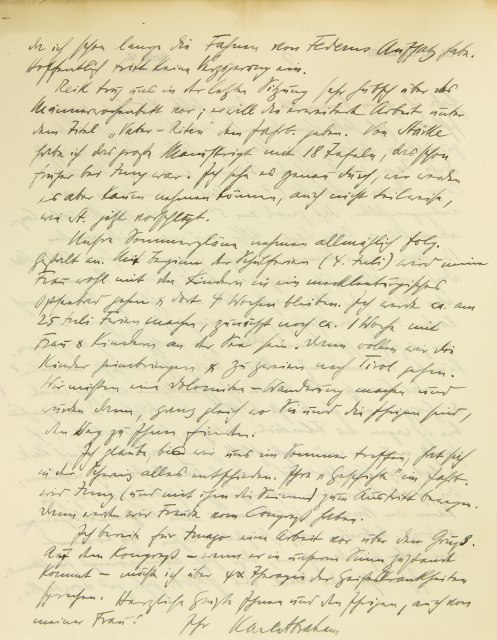 da ich schon lange die Fahnen von Federns Aufsatz habe.
Hoffentlich tritt keine Verzögerung ein.
Reik trug uns in der letzten Sitzung sehr hübsch über das
Männerwochenbett vor; er will die erweiterte Arbeit unter
dem Titel „Vater-Riten" dem Jahrb. geben. Von Stärcke
habe ich das große Manuskript mit 18 Tafeln, das schon
früher bei Jung war. Ich sehe es genau durch, wir werden
es aber kaum nehmen können, auch nicht teilweise,
wie St. jetzt vorschlägt.
Unsre Sommerpläne nehmen allmählich folg.
Gestalt an. Mit Beginn der Schulferien (4. Juli) wird meine
Frau wohl mit den Kindern in ein mecklenburgisches
Ostseebad gehen & dort 4 Wochen bleiben. Ich werde ca. am
25 Juli Ferien machen, zunächst noch ca. 1 Woche mit
Frau & Kindern an der See sein. Dann wollen wir die
Kinder heimbringen & zu zweien nach Tirol gehen.
Wir möchten eine Dolomiten-Wanderung machen und
würden dann, ganz gleich wo Sie und die Ihrigen sind,
den Weg zu Ihnen finden.
Ich glaube, bis wir uns im Sommer treffen, hat sich
in der Schweiz alles entschieden. Ihre „Geschichte" im Jahrb.
wird Jung (und mit ihm die Seinen) zum Austritt bewegen.
Dann werden wir Freude vom Congreß haben.
Ich bereite für Imago eine Arbeit vor über den Gruß.
Auf dem Kongreß – wenn er in unserem Sinn zustande
kommt – möchte ich über die Therapie der Geisteskrankheiten
sprechen. Herzliche Grüße Ihnen und den Ihrigen, auch von
meiner Frau! Ihr Karl Abraham